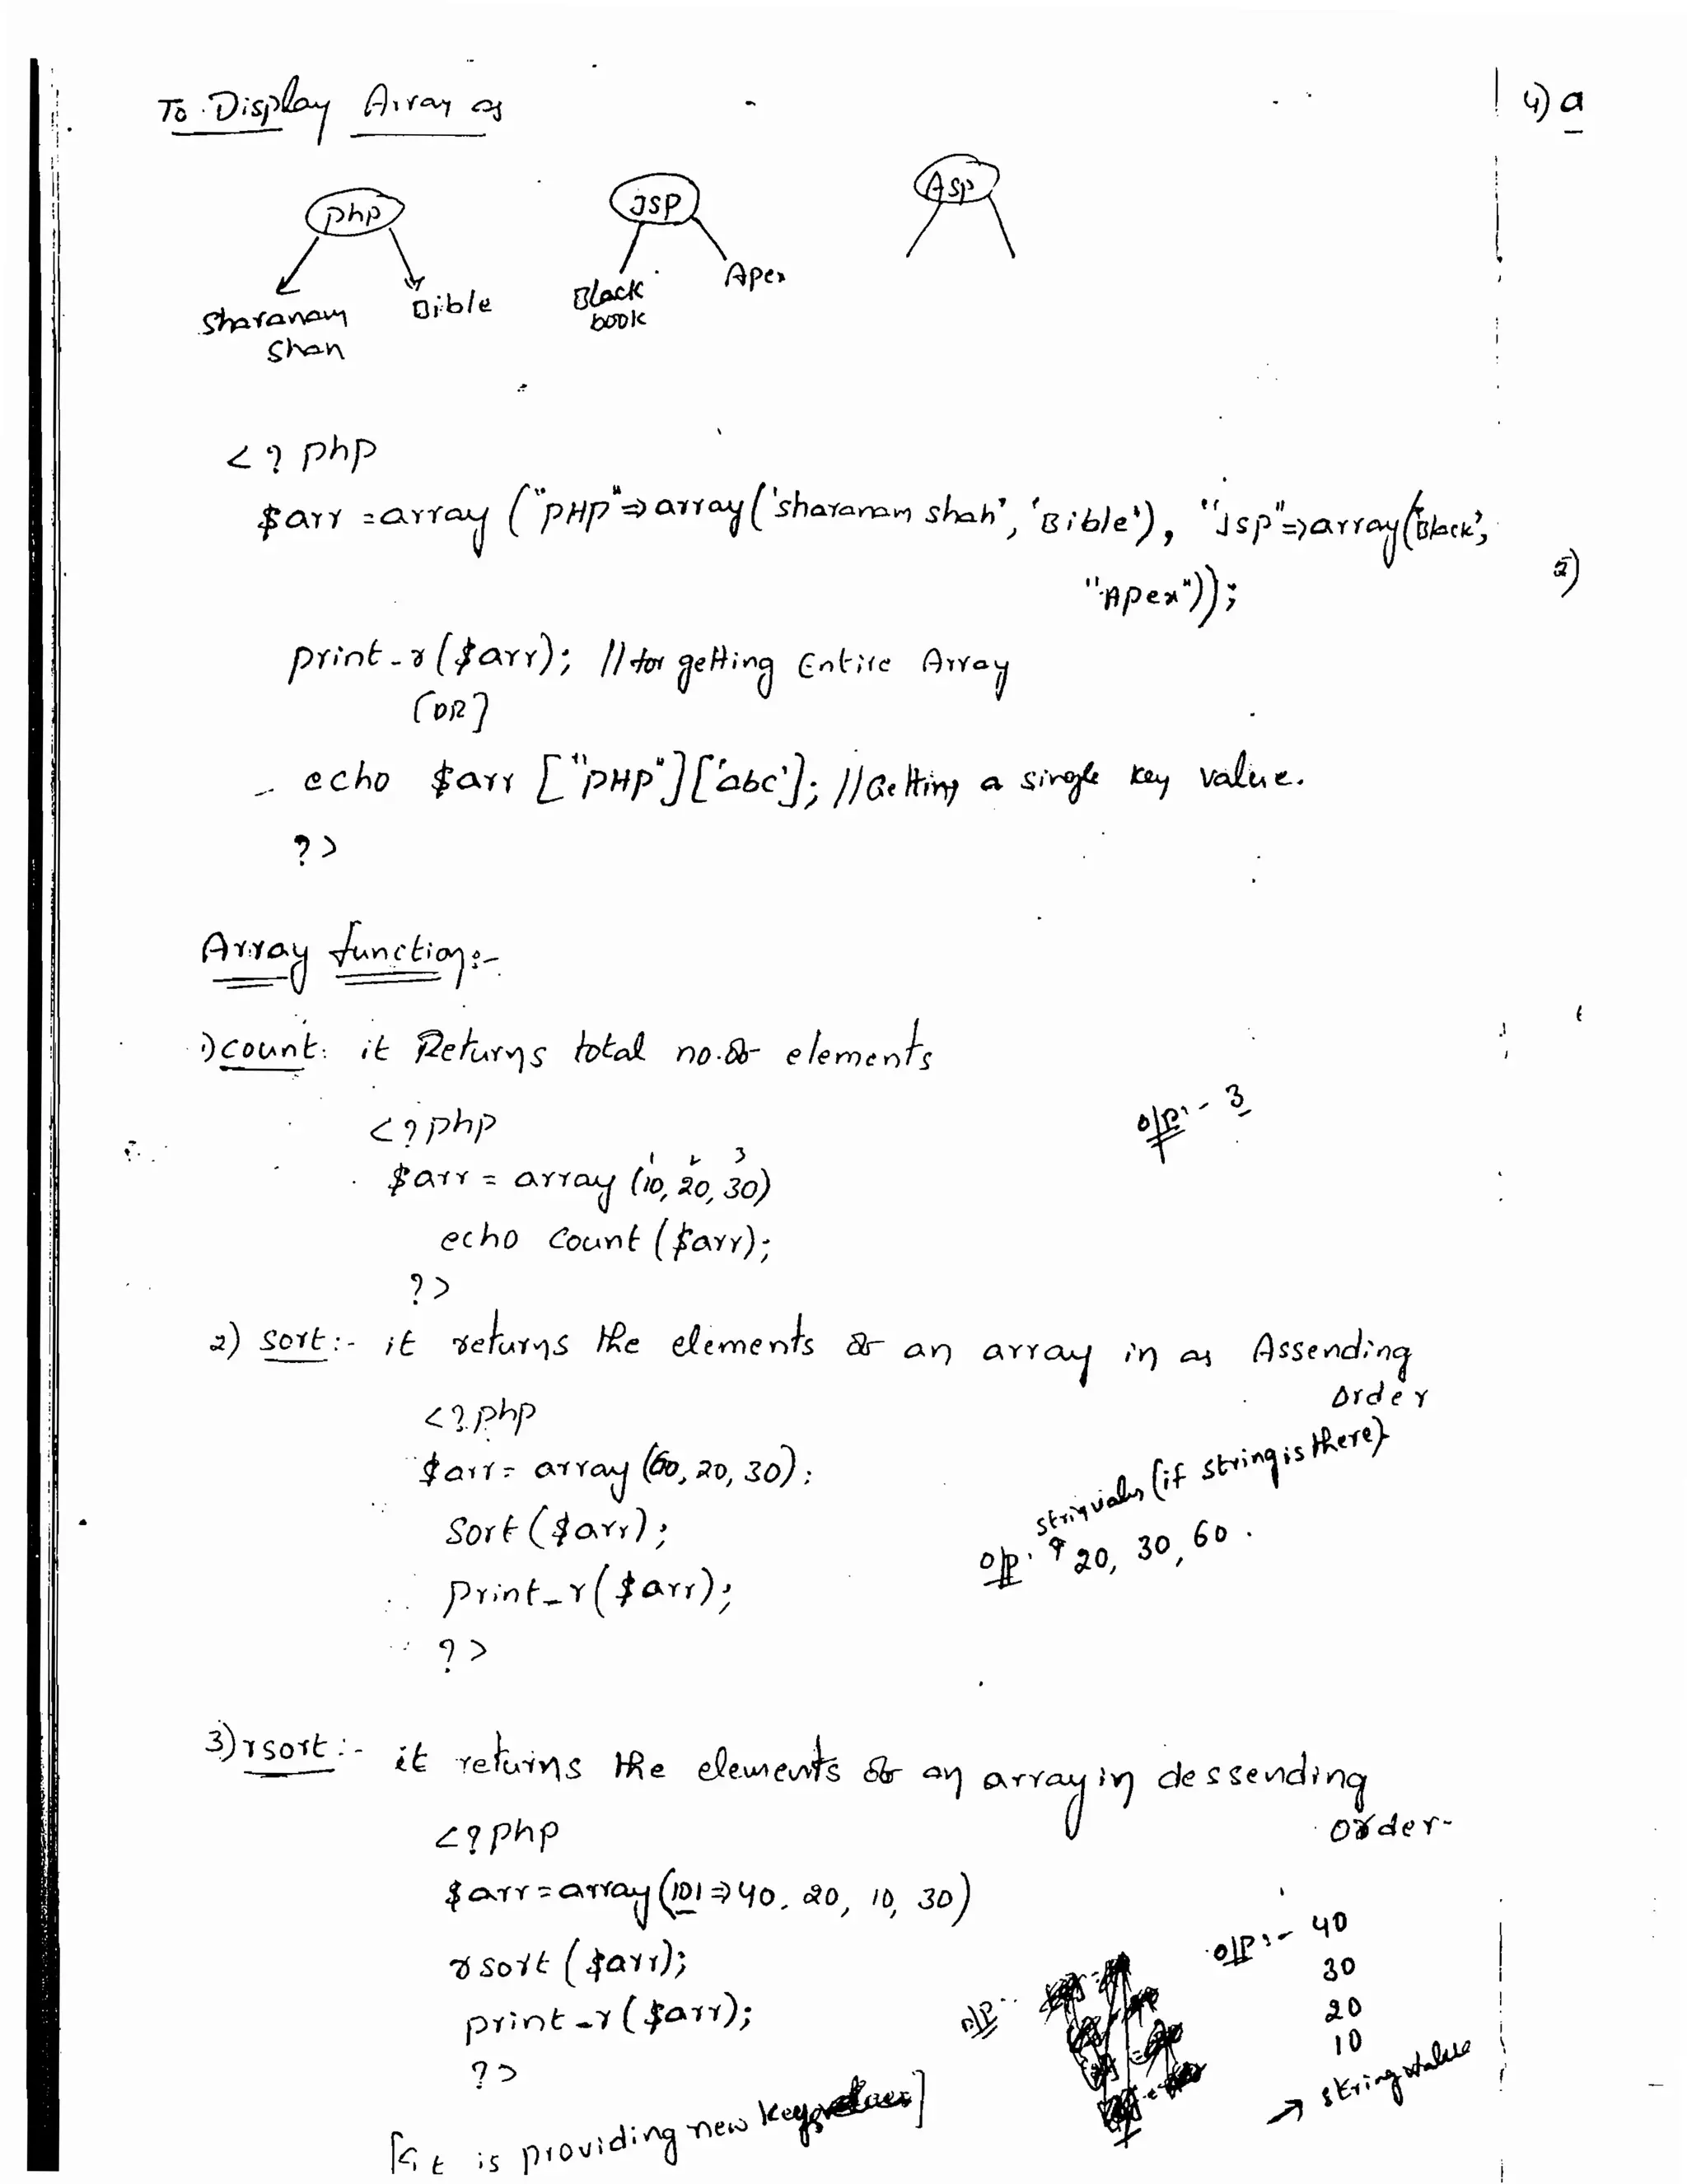 To Display Array as
php
JSP
Asp
Sharanam Shah
Bible
Black book
Apex
<? php
$arr = array ("PHP"=>array('sharanam shah', 'Bible'), "Jsp"=>array('Black',
"Apex"));
print_r($arr); // for getting Entire Array
[OR]
echo $arr ["PHP"]['abc']; // Getting a single key value.
?>
Array function:-
1) count: it Returns total no.of elements
<?php
$arr = array (10, 20, 30)
1 2 3
echo count ($arr);
?>
o/p:- 3
2) sort:- it returns the elements of an array in as Assending
order
<?php
$arr = array (60, 20, 30);
Sort ($arr);
print_r($arr);
?>
string values (if string is there)
o/p: 20, 30, 60.
3) rsort:- it returns the elements of an array in dessending
order-
<?php
$arr = array (101=>40, 20, 10, 30)
rsort ($arr);
print_r ($arr);
?>
o/p:
o/p:- 40
30
20
10
→ string value
[it is providing new key]
4) a
5)